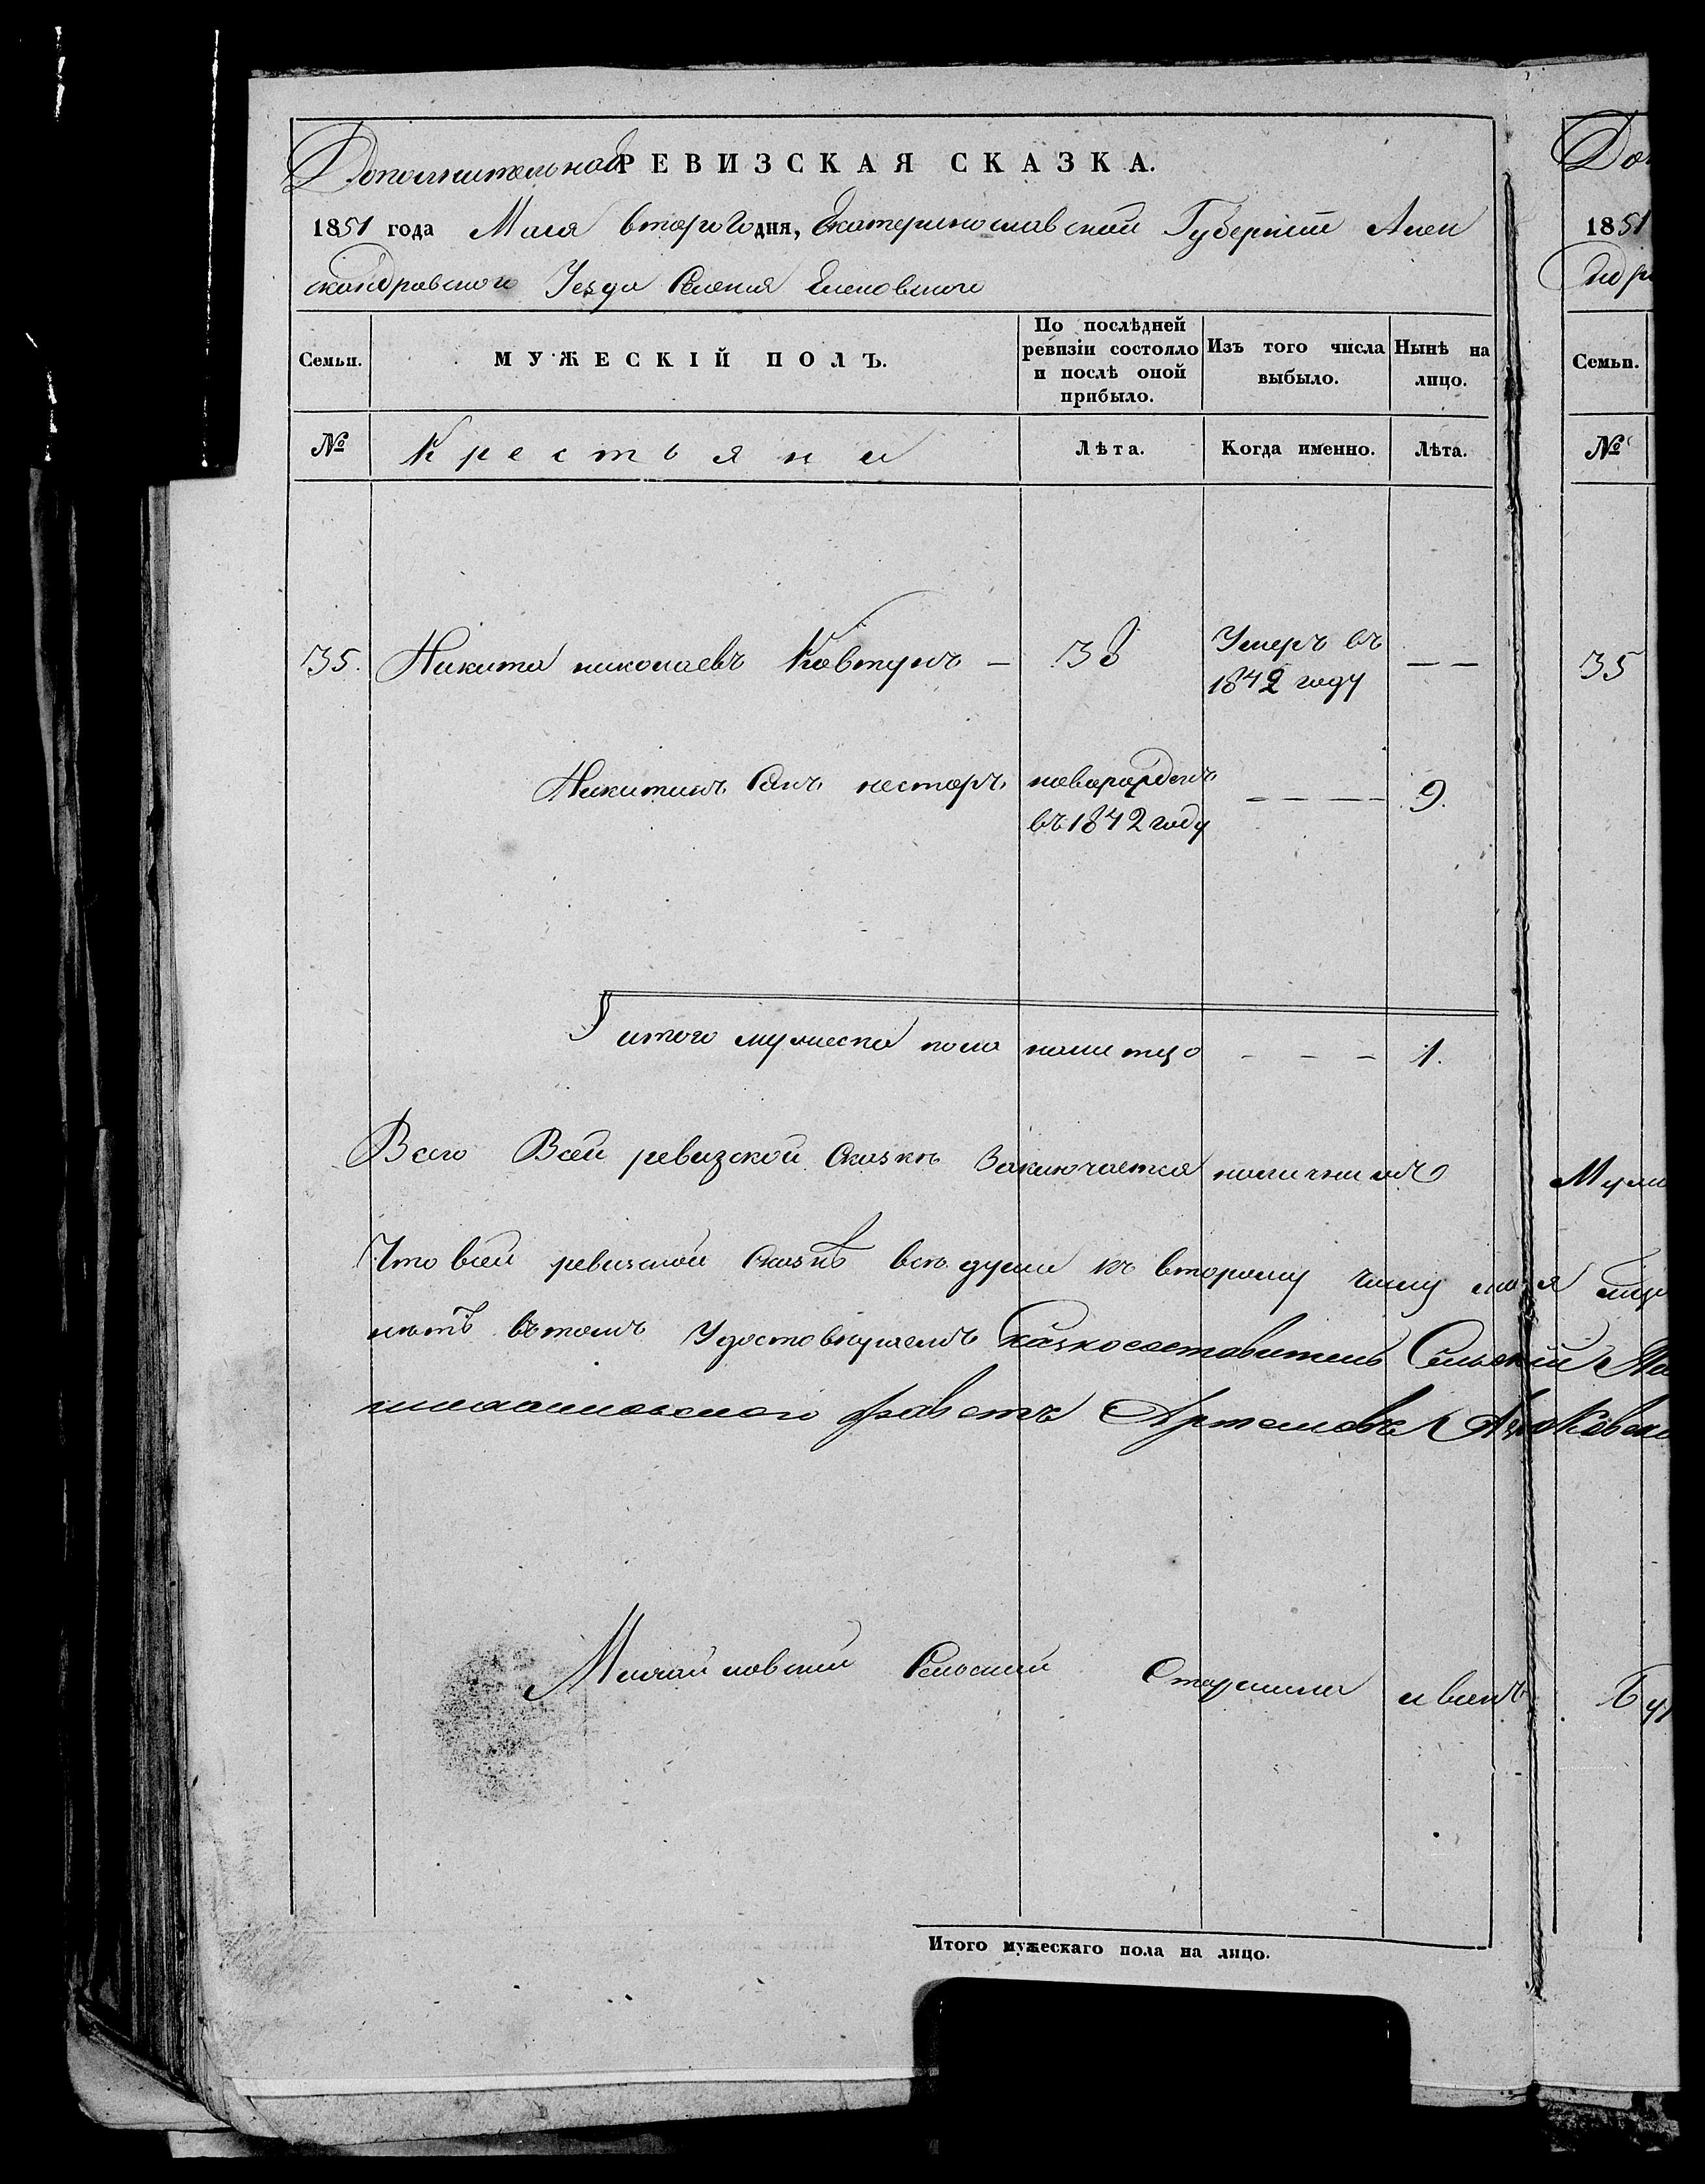 Дополнительная РЕВИЗСКАЯ СКАЗКА.
1851 года Маия второго дня, Екатеринославской Губернии Алек
сандровского Уезда Селения Еленовского
Семьи. МУЖЕСКІЙ ПОЛЪ. По послѣдней ревизіи состояло и послѣ оной прибыло. Изъ того числа выбыло. Нынѣ на лицо.
№ Крестьяни Лѣта. Когда именно. Лѣта.
35. Никита николаевъ Ковтунъ – 38 Умеръ въ 1842 году — —
Никитинъ Сынъ несторъ новорожденъ въ 1842 году — — — 9.
итого мужеска пола налицо - - - 1.
Всего Всей ревизской Сказкѣ Заключается наличнихъ
Что всей ревизской Сказкѣ всѣ души къ второму числу мая
вътомъ Удостовѣряемъ Сказкосоставитель Сельскій
Артемовъ
Михайловский Селский Старшина иванъ
Итого мужескаго пола на лицо.
До
1851
Семьи.
№
35
Мужи